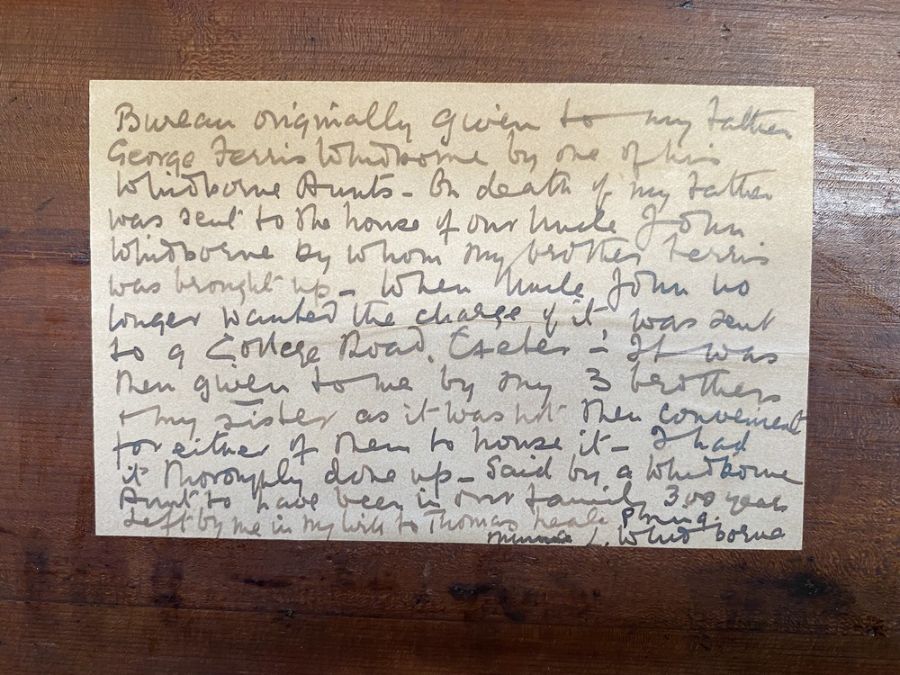 Bureau originally given to my father
George Ferris Whidborne by one of his
Whidborne Aunts - On death of my father
was sent to the house of our Uncle John
Whidborne by whom my brother Ferris
was brought up - When Uncle John no
longer wanted the charge of it, was sent
to 9 College Road, Exeter - It was
then given to me by my 3 brothers
& my sister as it was not then convenient
for either of them to house it - I had
it thoroughly done up - Said by a Whidborne
Aunt to have been in our family 300 years
Left by me in my will to Thomas
Whidborne